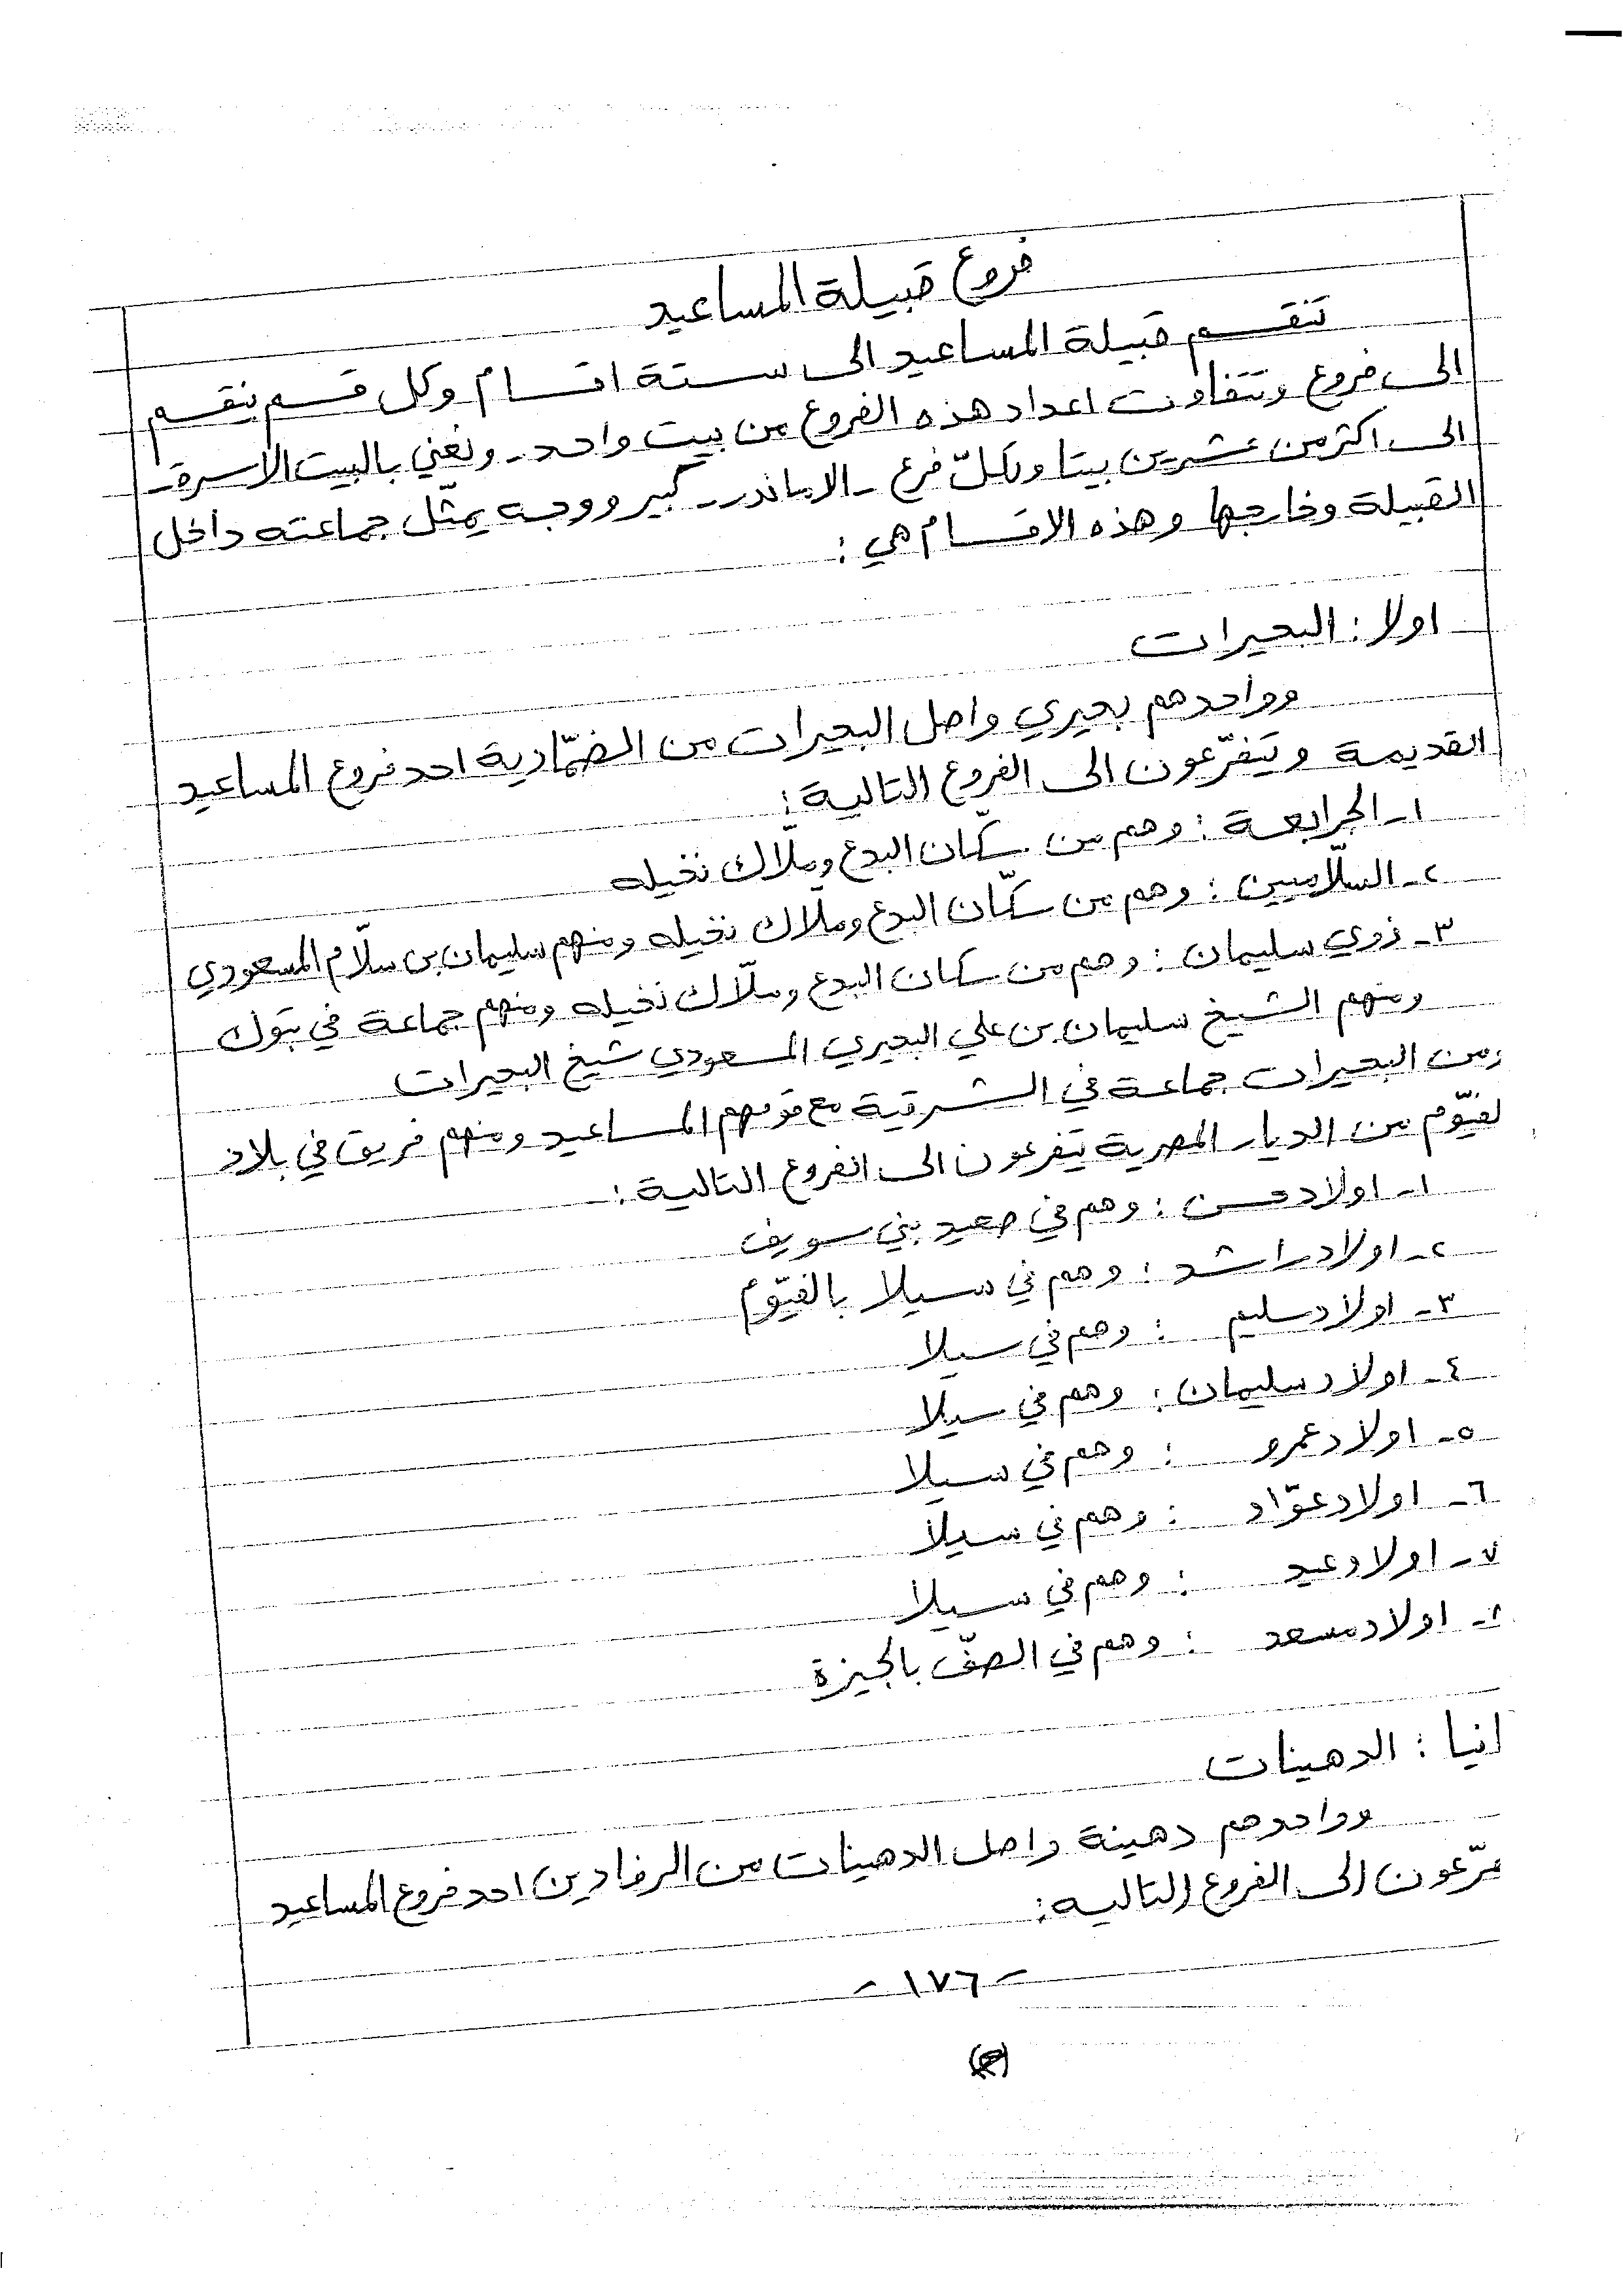 فروع قبيلة المساعيد
تنقسم قبيلة المساعيد الى ستة اقسام وكل قسم ينقسم
الى فروع وتتفاوت اعداد هذه الفروع من بيت واحد - ونعني بالبيت الاسرة -
الى اكثر من عشرين بيتا ولكلّ فرع - الا ما ندر - كبير ووجه يمثّل جماعته داخل
القبيلة وخارجها وهذه الاقسام هي :
اولا : البحيرات
وواحدهم بحيري واصل البحيرات من الضمّادية احد فروع المساعيد
القديمة ويتفرّعون الى الفروع التالية :
١- الجرابعة : وهم من سكّان البدع وملّاك نخيله
٢- السلّاميين : وهم من سكّان البدع وملاك نخيله ومنهم سليمان بن سلّام المسعودي
٣- ذوي سليمان : وهم من سكان البدع وملّاك نخيله ومنهم جماعة في تبوك
ومنهم الشيخ سليمان بن علي البحيري المسعودي شيخ البحيرات
ومن البحيرات جماعة في الشرقية مع قومهم المساعيد ومنهم فريق في بلاد
لفيّوم من الديار المصرية يتفرعون الى الفروع التالية :
١- اولاد حسن : وهم في صعيد بني سويف
٢- اولاد راشد : وهم في سيلا بالفيّوم
٣- اولاد سليم : وهم في سيلا
٤- اولاد سليمان : وهم في سيلا
٥- اولاد عمرو : وهم في سيلا
٦- اولاد عوّاد : وهم في سيلا
٧- اولاد عيد : وهم في سيلا
٨- اولاد مسعد : وهم في الصفّ بالجيزة
انيا : الدهينات
وواحدهم دهينة واصل الدهينات من الرفادين احد فروع المساعيد
فرّعون الى الفروع التالية :
- ١٧٦ -